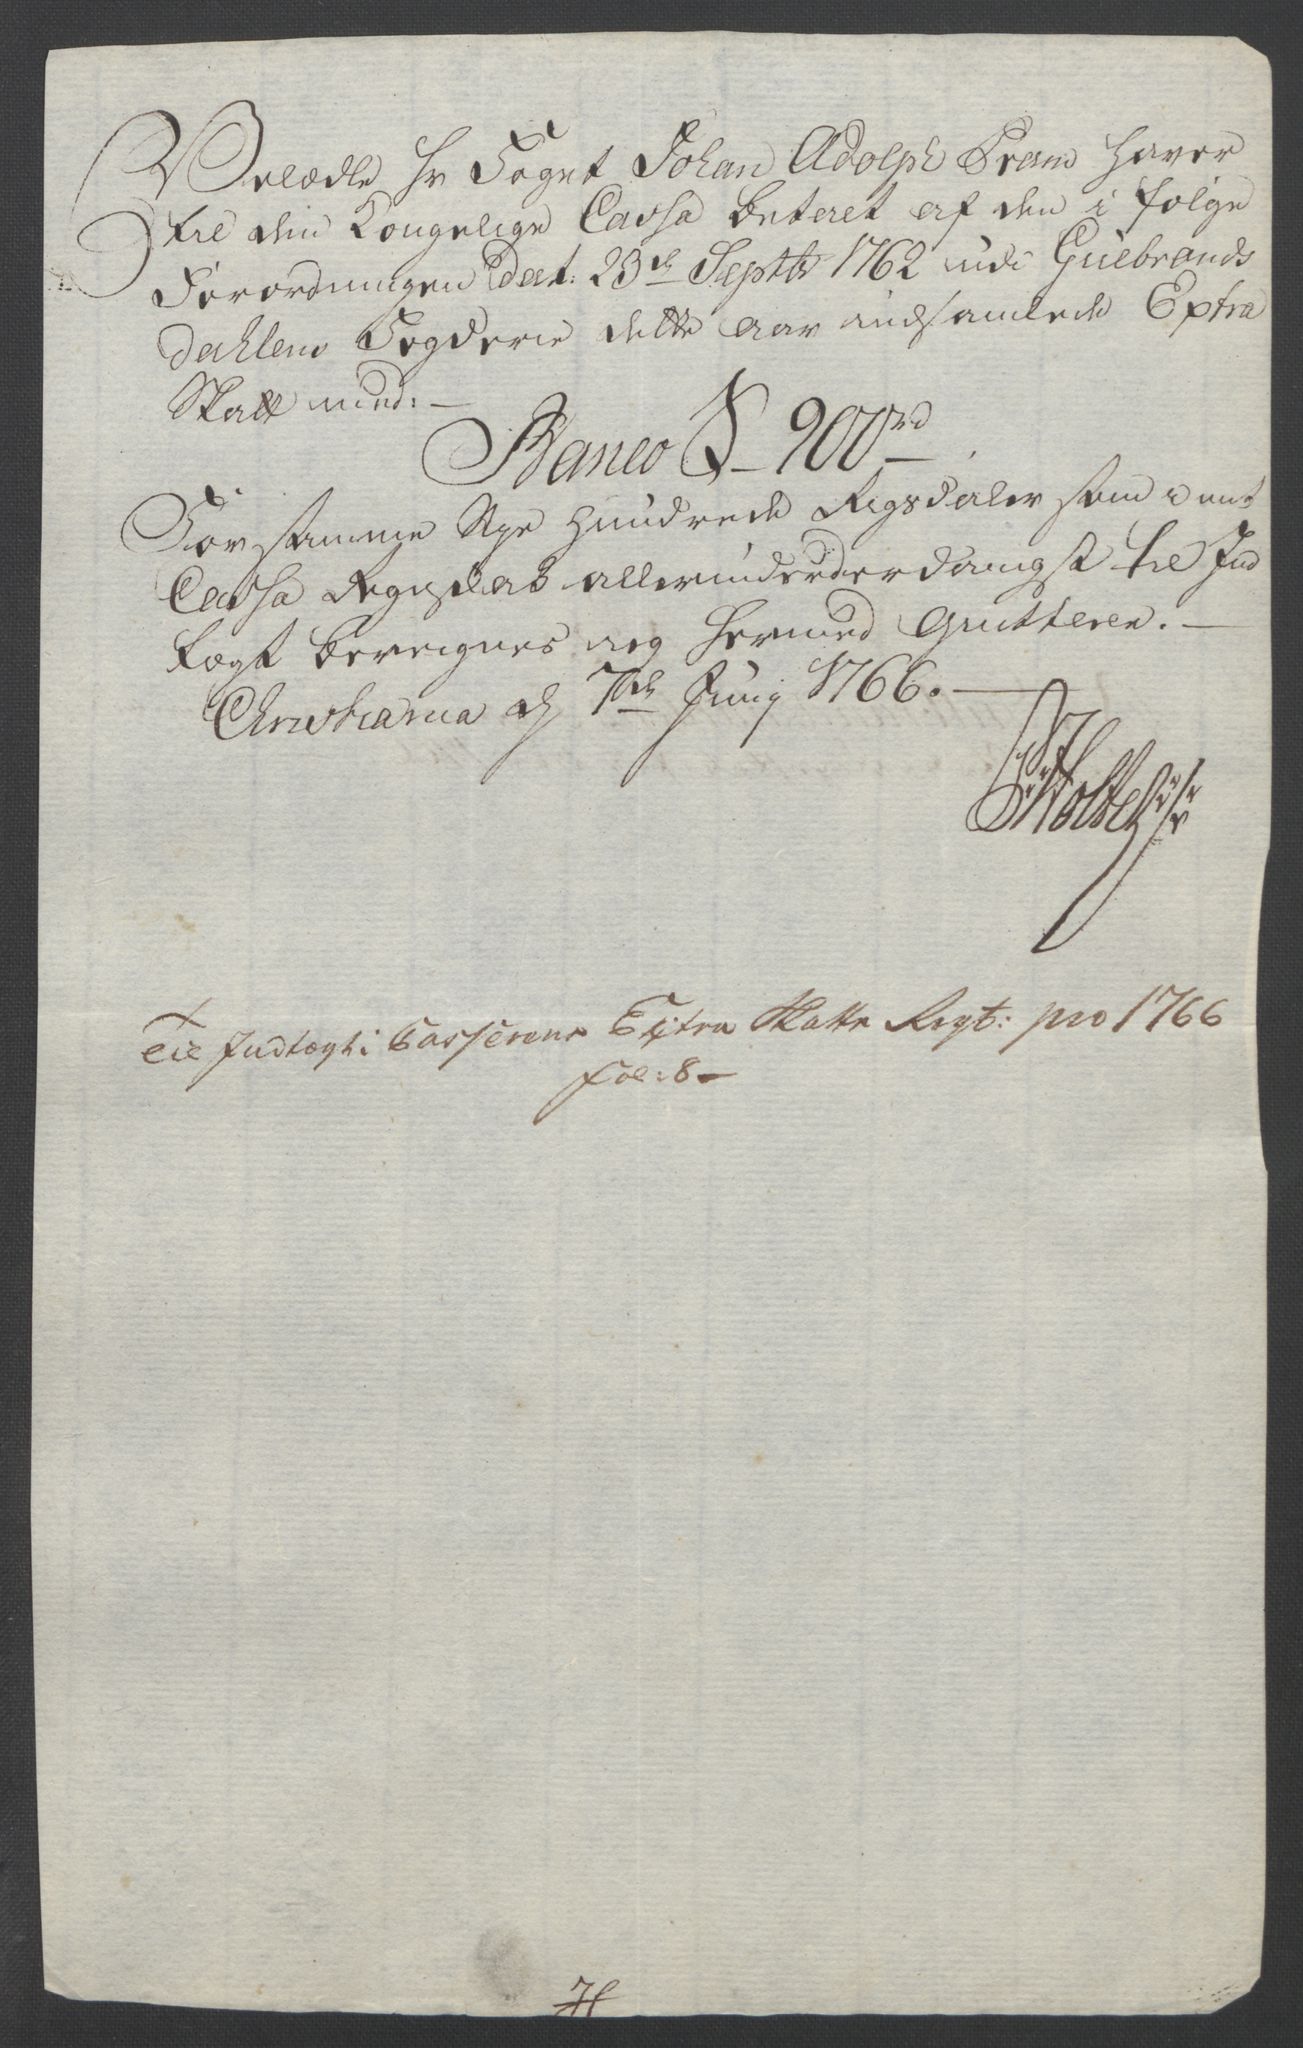 Velædle Hr Foget Johan Adolph Pram haver
til den Kongelige Cassa betalt af den i følge
Forordningen Dat: 23de Septbr 1762 udi Guebrands
dahlens Fogderie dette aar indsamlede Extra
Skatt med: —
Banco S – 900 rd
For samme Nye Hundrede Rigsdaler som i mit
Cassa Regnskab allerunderderdanigst til Ind
tægt beregnes ieg hermed qvitterer. —
Christiania d 7de Juny 1766. —
Holte
Til Indtægt i Casserens Extra Skatte Regt: pro 1766
Fol: 8 –